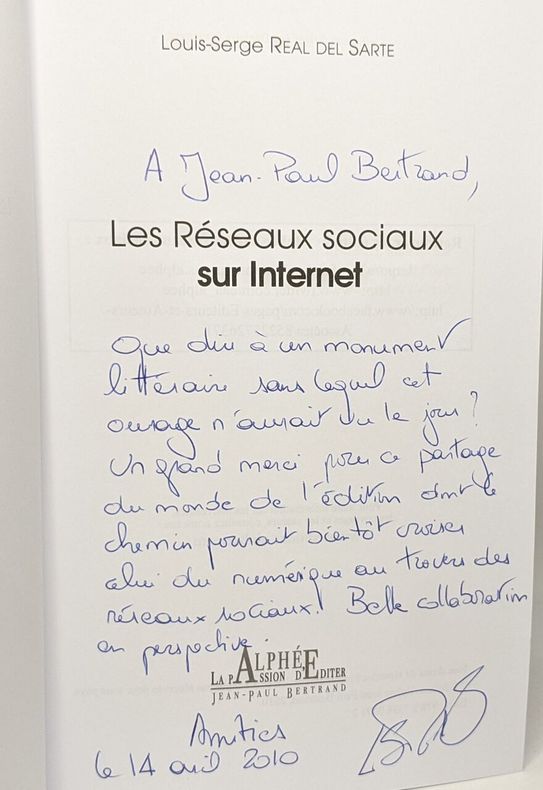 Louis-Serge REAL DEL SARTE
A Jean-Paul Bertrand,
Les Réseaux sociaux
sur Internet
Que dire à un monument
littéraire sans lequel cet
ouvrage n'aurait vu le jour ?
Un grand merci pour ce partage
du monde de l'édition dont le
chemin pourrait bientôt croiser
celui du numérique au travers des
réseaux sociaux. Belle collaboration
en perspective.
ALPHÉE
LA PASSION D'ÉDITER
JEAN-PAUL BERTRAND
Amitiés
le 14 avril 2010